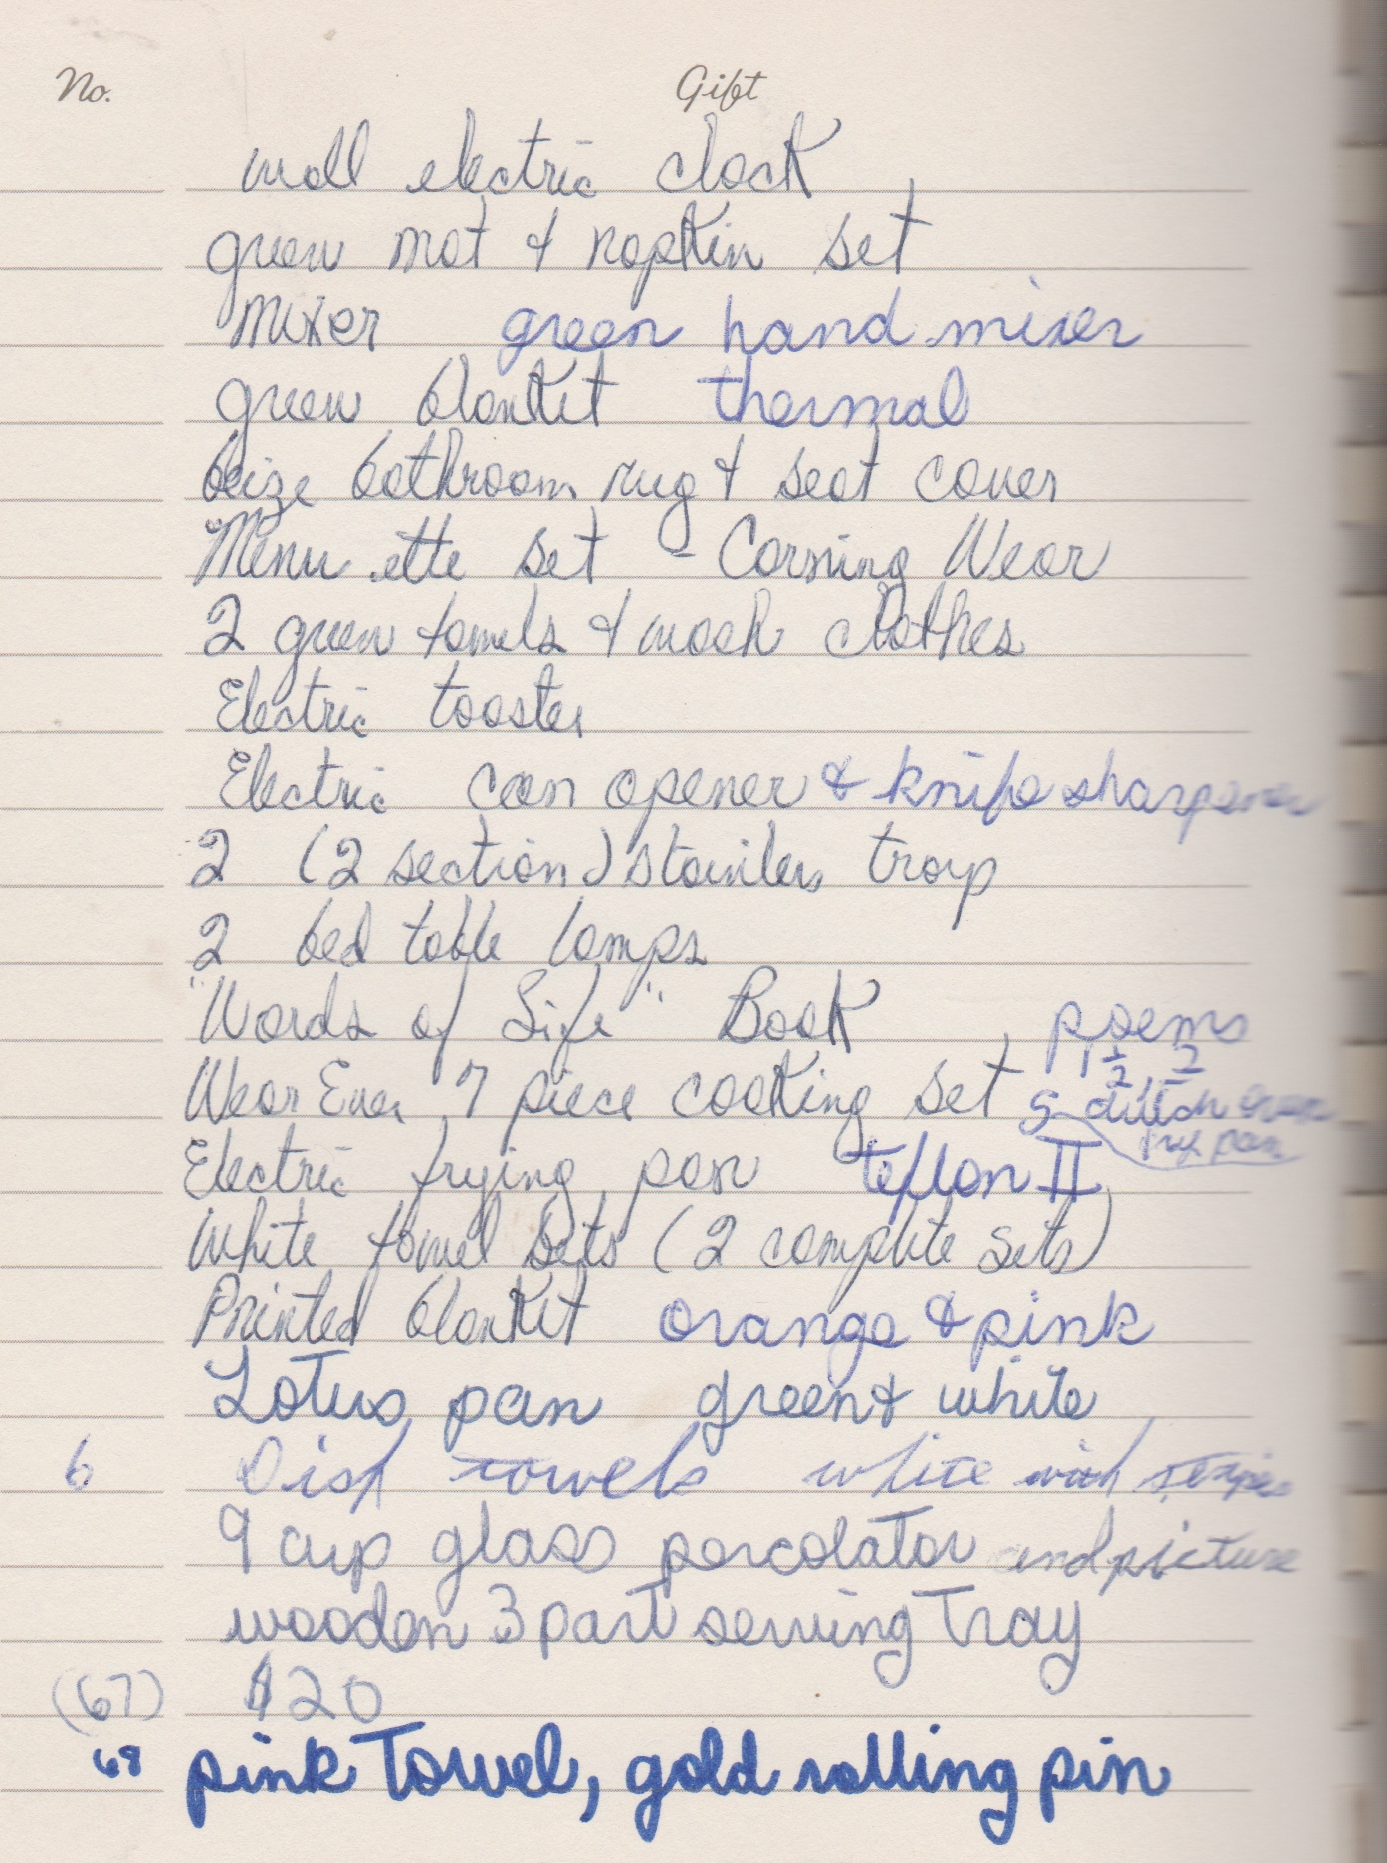 No. Gift
wall electric clock
green mat & napkin set
mixer green hand mixer
green blanket thermal
beize bathroom rug & seat cover
"Menu-ette set - Corning Wear
2 green towels & wash clothes
Electric toaster
Electric can opener & knife sharpener
2 (2 section) stainless trays
2 bed table lamps
"Words of Life" Book poems
1 1/2, 2
Wear Ever 7 piece cooking set 5 dutch oven
fry pan
Electric frying pan teflon II
White towel sets (2 complete sets)
Printed blanket orange & pink
Lotus pan green & white
6 Dish towels white with stripes
9 cup glass percolator and picture
wooden 3 part serving tray
(67) $20
68 pink towel, gold rolling pin